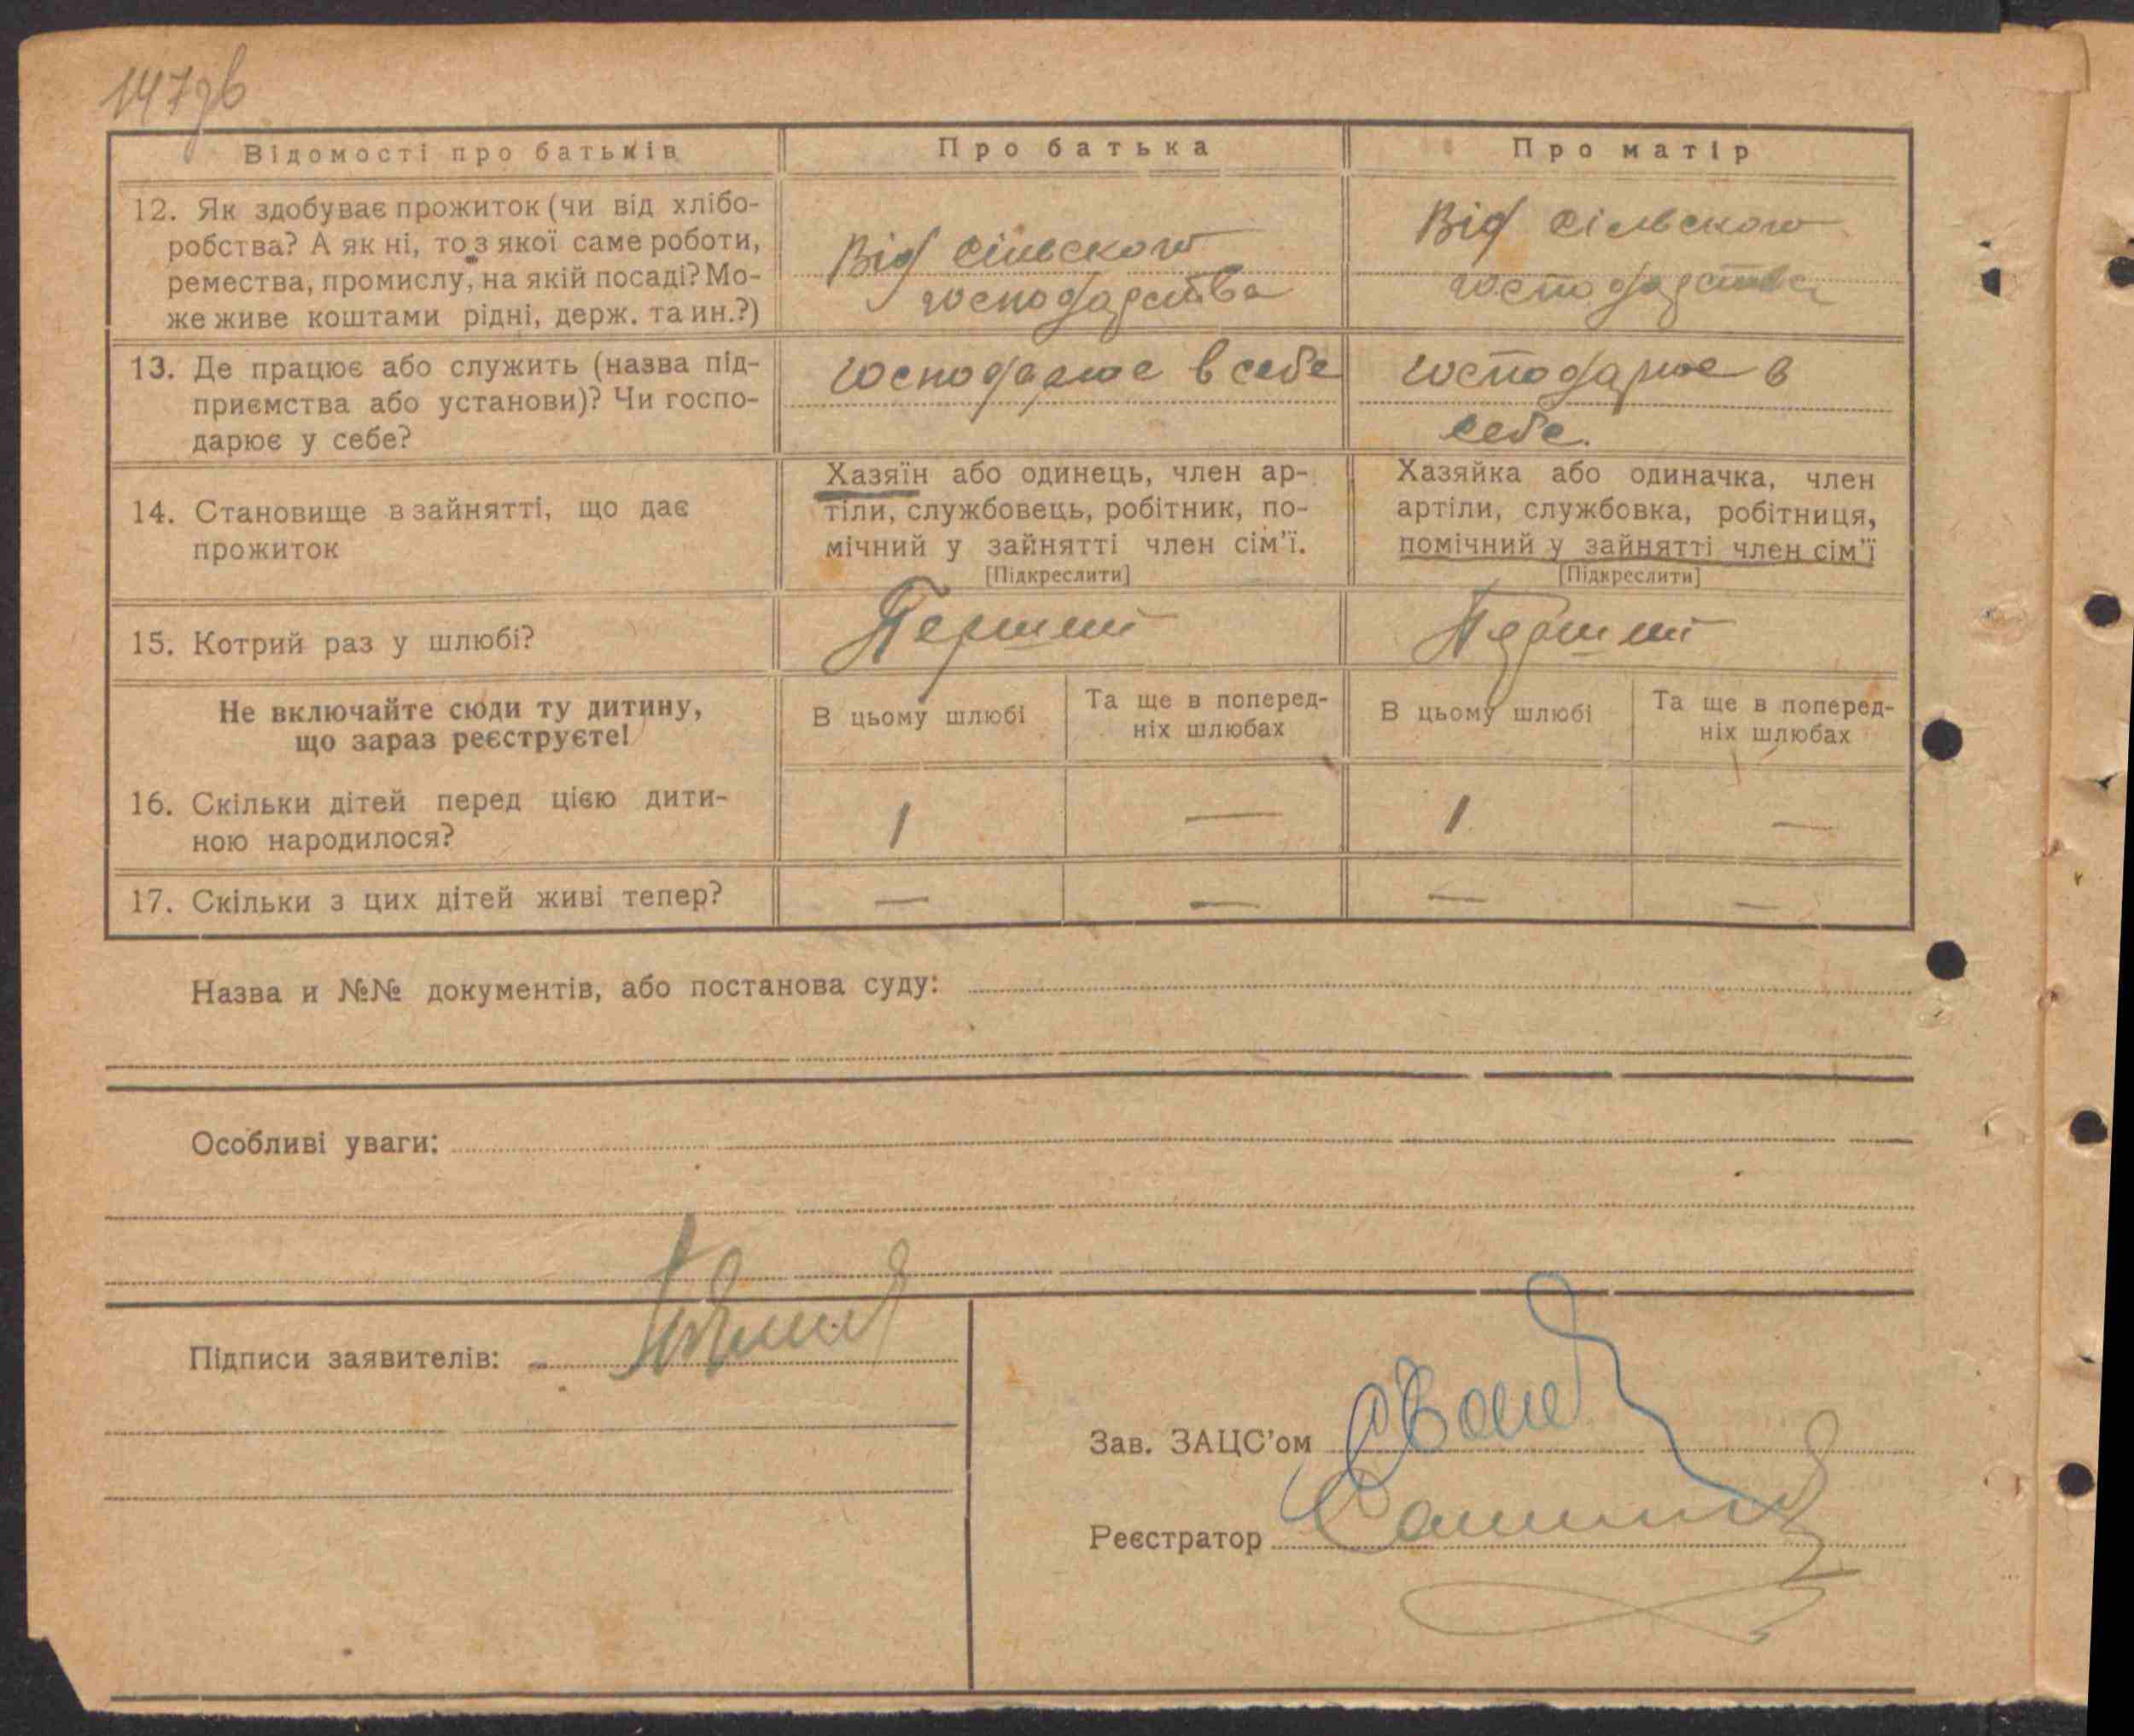 147зв
Відомості про батьків
Про батька
Про матір
12. Як здобуває прожиток (чи від хлібо-
робства? А як ні, то з якої саме роботи,
ремества, промислу, на якій посаді? Мо-
же живе коштами рідні, держ. та ин.?)
Від сільского
господарства
Від сільского
господарства
13. Де працює або служить (назва під-
приємства або установи)? Чи госпо-
дарює у себе?
Господарює в себе
Господарює в
себе.
14. Становище в зайнятті, що дає
прожиток
Хазяїн або одинець, член ар-
тіли, службовець, робітник, по-
мічний у зайнятті член сім'ї.
[Підкреслити]
Хазяйка або одиначка, член
артіли, службовка, робітниця,
помічний у зайнятті член сім'ї
[Підкреслити]
15. Котрий раз у шлюбі?
Перший
Перший
Не включайте сюди ту дитину,
що зараз реєструєте!
В цьому шлюбі
Та ще в поперед-
ніх шлюбах
В цьому шлюбі
Та ще в поперед-
ніх шлюбах
16. Скільки дітей перед цією дити-
ною народилося?
1
—
1
—
17. Скільки з цих дітей живі тепер?
—
—
—
—
Назва и №№ документів, або постанова суду:
Особливі уваги:
Підписи заявителів:
Зав. ЗАЦС'ом
Реєстратор